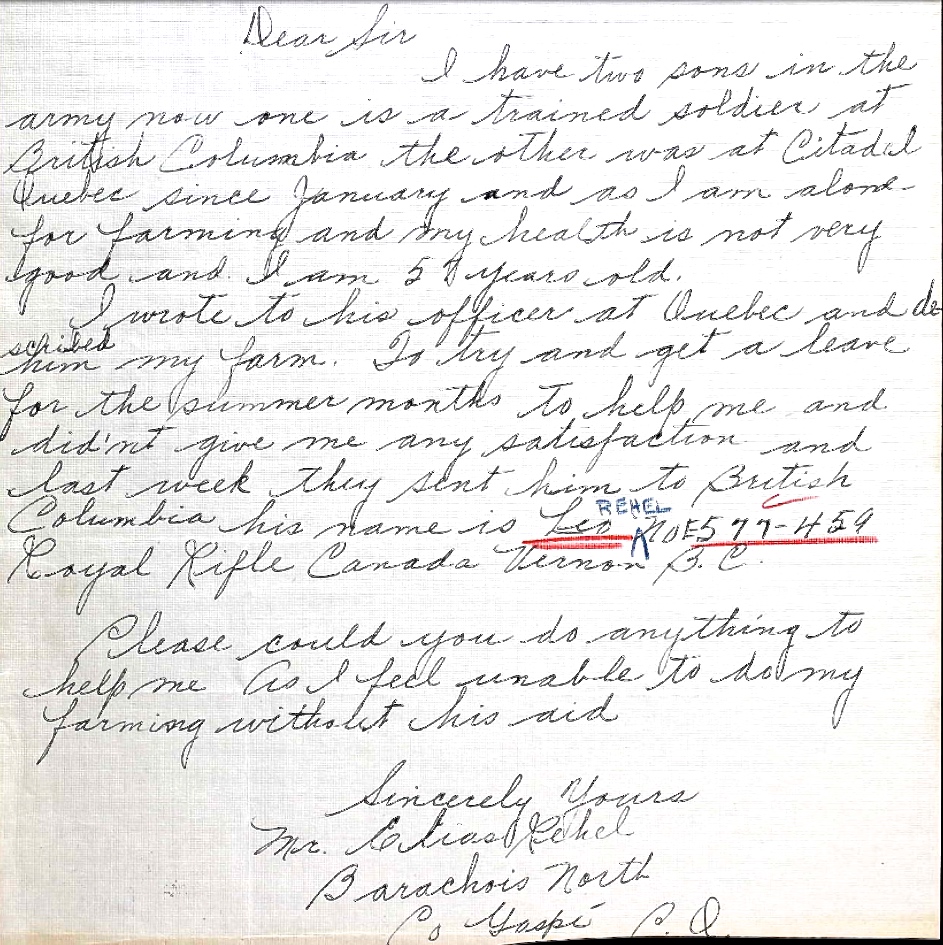 Dear Sir
I have two sons in the
army now one is a trained soldier at
British Columbia the other was at Citadel
Quebec since January and as I am alone
for farming and my health is not very
good and I am 58 years old.
I wrote to his officer at Quebec and de-
scribed
him my farm. To try and get a leave
for the summer months to help me and
did'nt give me any satisfaction and
last week they sent him to British
REHEL
Columbia his name is Leo No E577-459
Royal Rifle Canada Vernon B.C.
Please could you do anything to
help me As I feel unable to do my
farming without his aid
Sincerely Yours
Mr. Elias Rehel
Barachois North
Co Gaspé P.Q.